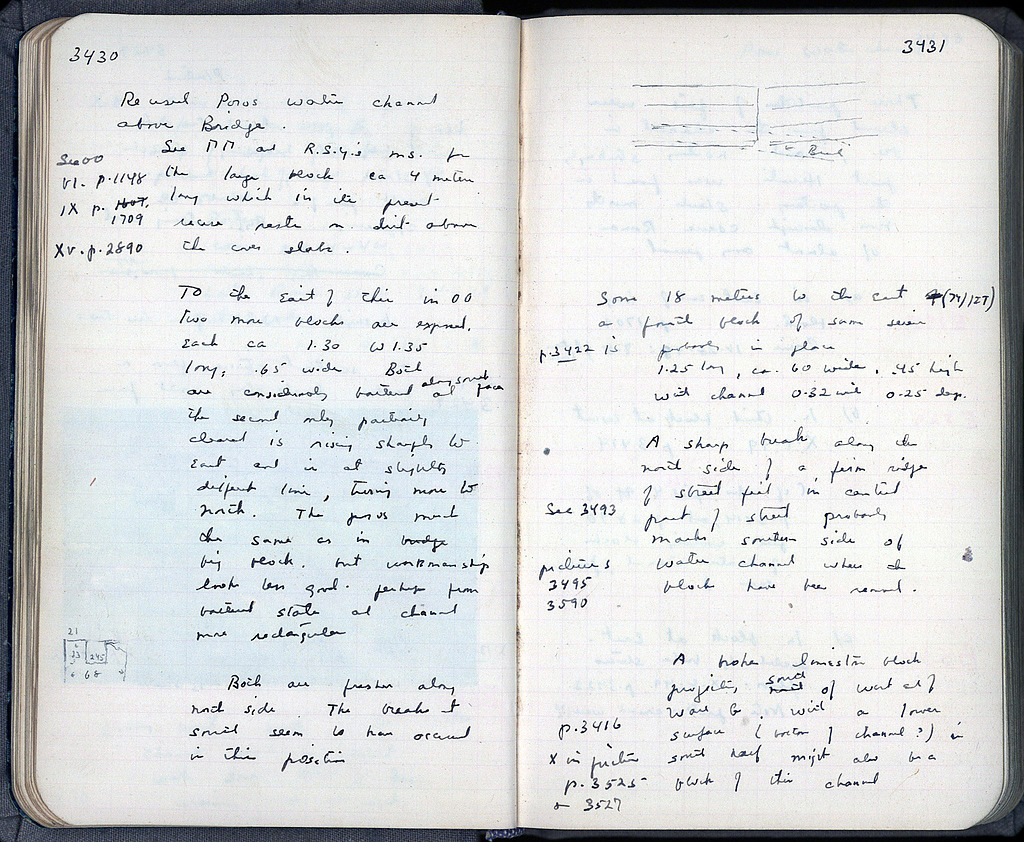 3430
Reused Poros water channel
above Bridge.
See OO
VI. p.1148
IX p. 1607,
1709
XV. p.2890
See MM and R.S.Y's ms. for
the large block ca 4 meters
long which in its present
reuse rests on dirt above
the cover slabs.
To the East of this in OO
Two more blocks are exposed.
Each ca 1.30 to 1.35
long, .65 wide Both
are considerably battered at along south face
the second only partially
cleared is rising sharply to
East and is at slightly
different line, turning more to
North. The poros must
the same as in bridge
big block. but workmanship
looks less good. perhaps from
battered state and channel
more rectangular
21
33 245
68
Both are fresher along
north side The breaks to
south seem to have occurred
in this position
3431
← Break
Some 18 meters to the east (74/IST)
a fourth block of same series
p.3422 is probably in place
1.25 long, ca. 60 wide, .45 high
with channel 0.32 wide 0.25 deep.
A sharp break along the
north side of a firm ridge
of street fill in central
See 3493
part of street probably
marks southern side of
pictures
3495
3590
water channel where the
blocks have been removed.
A broken limestone block
projecting south north of west end of
p.3416
wall G. with a lower
surface (bottom of channel?) in
X in picture
p. 3525
& 3527
south half might also be a
block of this channel